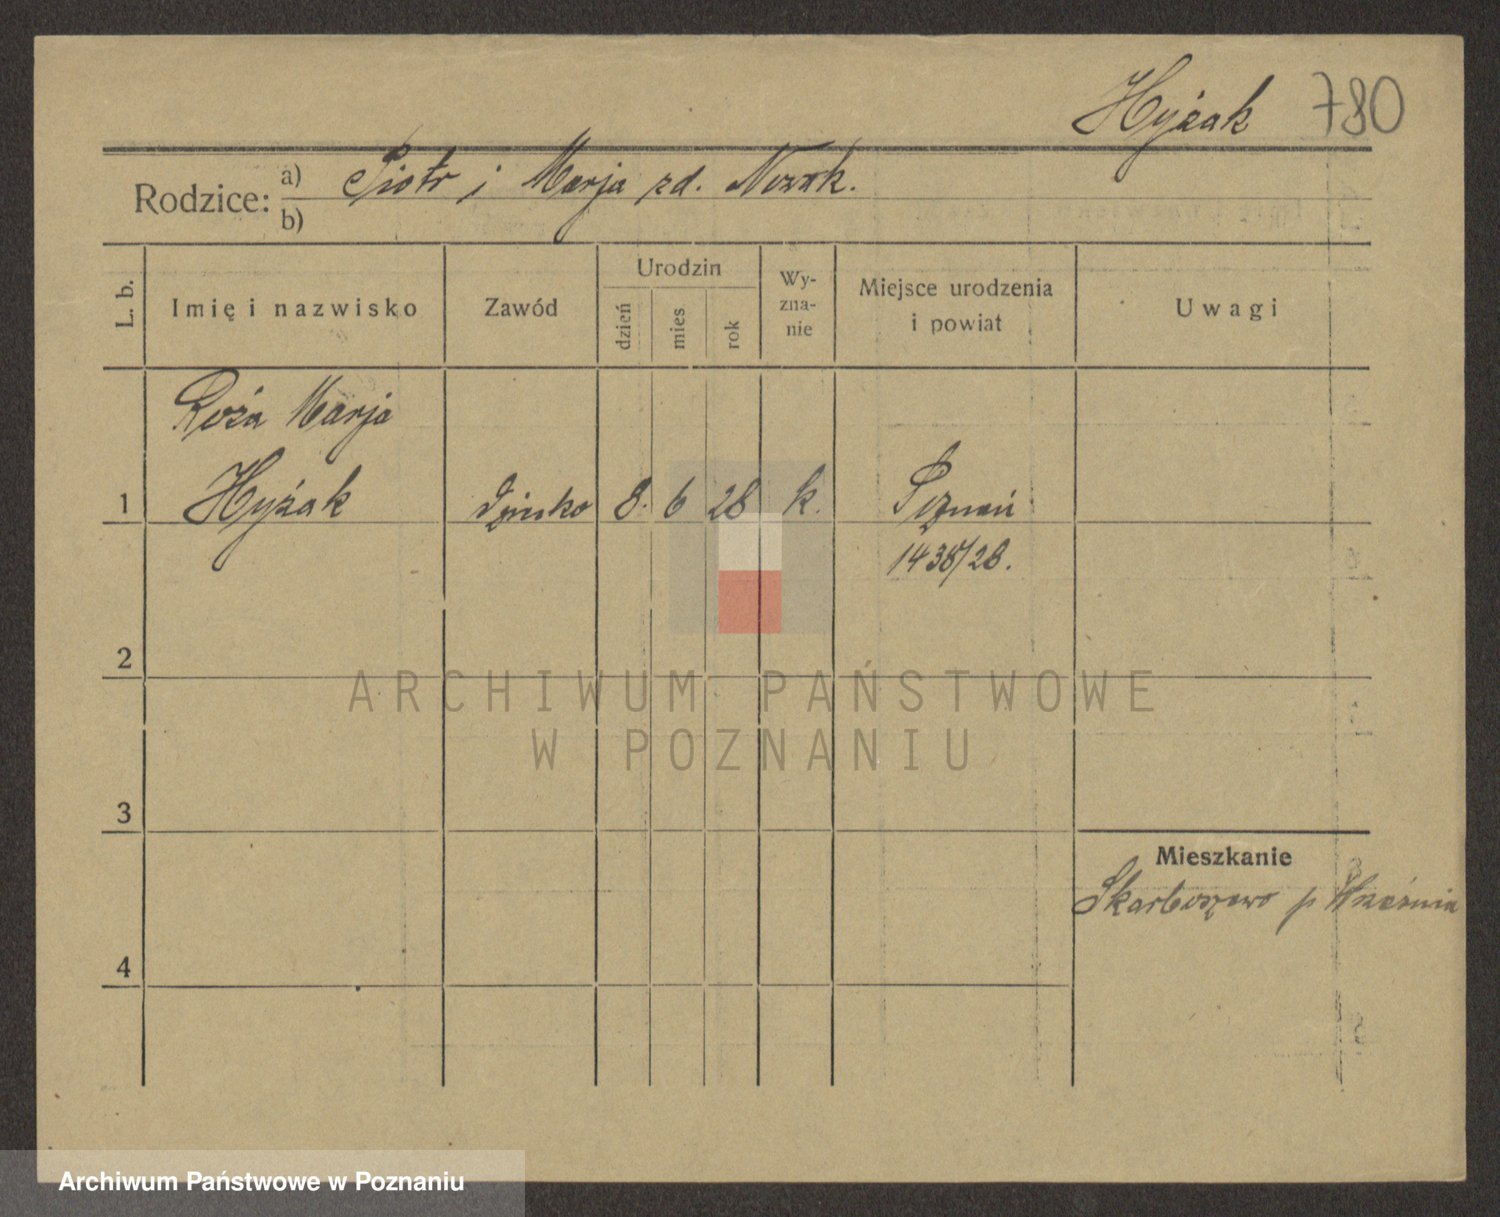 Hyżak 780
Rodzice: a) Piotr i Marja zd. Nowak.
b)
L. b.
Imię i nazwisko
Zawód
Urodzin
dzień
mies
rok
Wy-
zna-
nie
Miejsce urodzenia
i powiat
Uwagi
Róża Marja
1 Hyżak dziecko 8. 6 28 k. Poznań
1438/28.
2
ARCHIWUM PAŃSTWOWE
W POZNANIU
3
Mieszkanie
Skarboszewo p Września
4
Archiwum Państwowe w Poznaniu